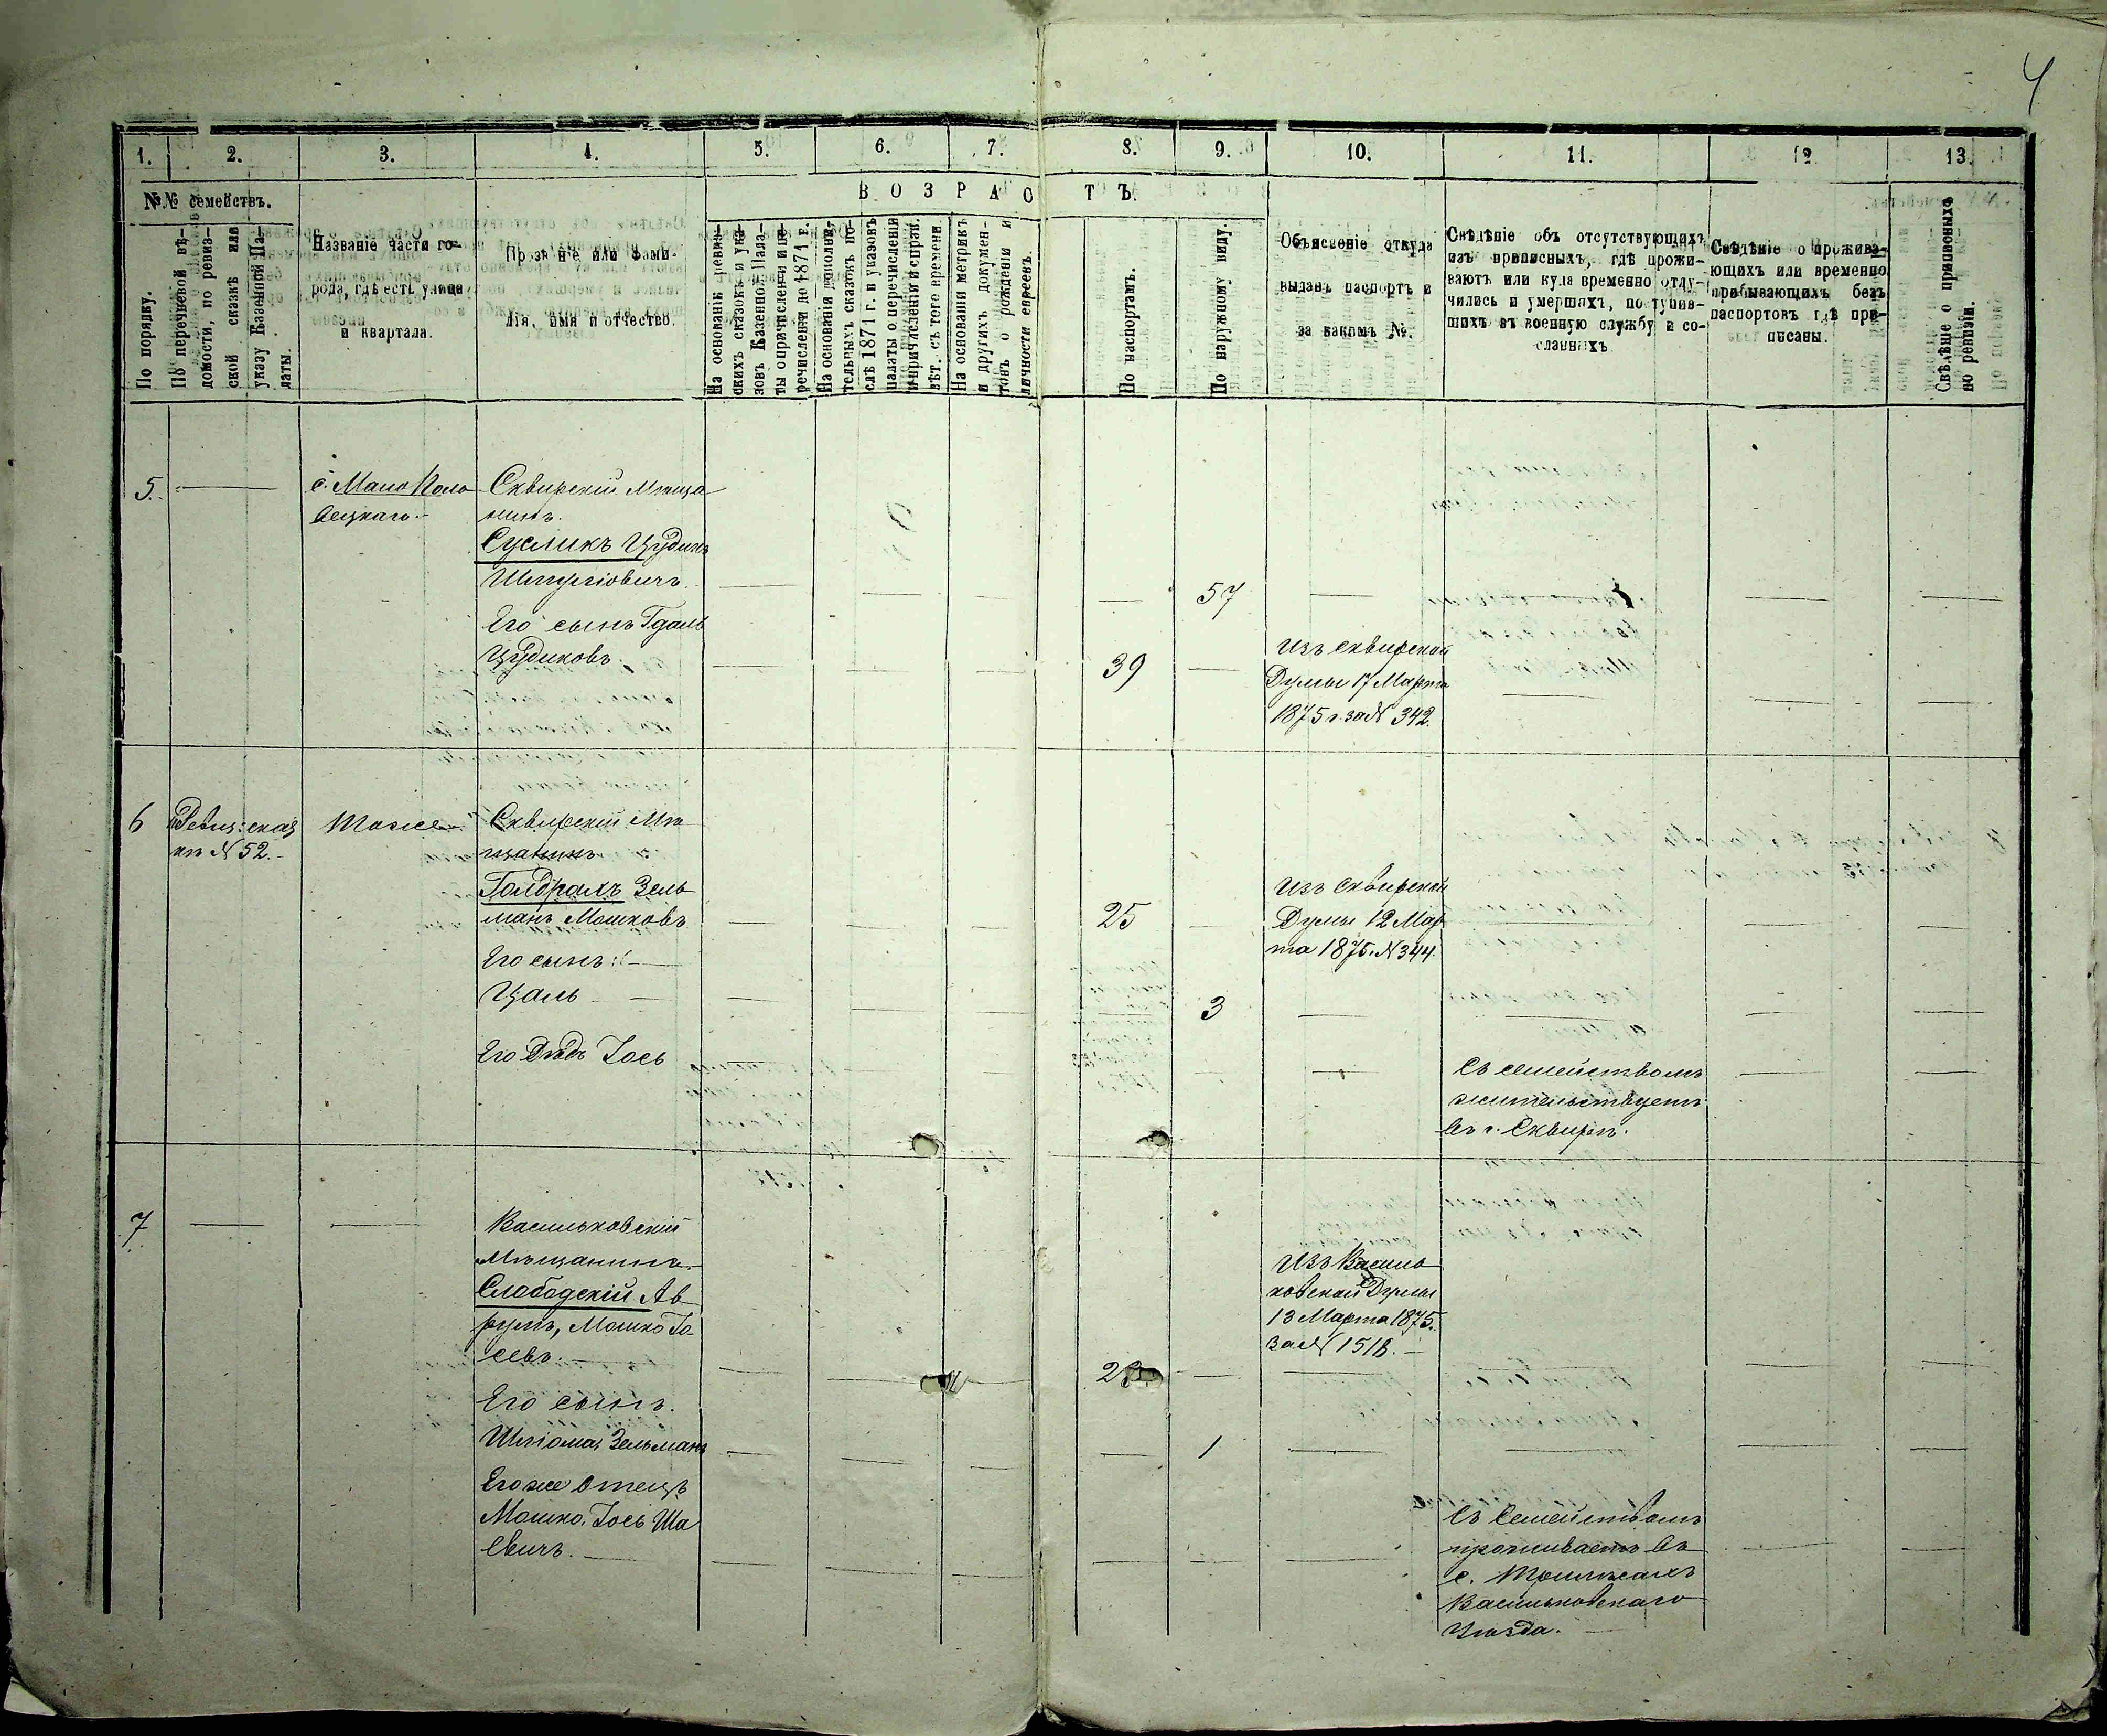 4
1. 2. 3. 4. 5. 6. 7. 8. 9. 10. 11. 12 13.
№№ семействъ.
В О З Р А С Т Ъ.
По порядку.
По перечневой вѣ-
домости, по ревиз-
ской сказкѣ или
указу Казенной Па-
латы.
Названіе части го-
рода, гдѣ есть улица
и квартала.
Прозваніе или фами-
лія, имя и отчество.
На основаніи ревиз-
скихъ сказокъ и ука-
зовъ Казенной Пала-
ты о причисленіи и пе-
речисленіи до 1871 г.
На основаніи дополни-
тельныхъ сказокъ по-
слѣ 1871 г. и указовъ
палаты о перечисленіи
и причисленіи и спрж.
лѣт. съ того времени.
На основаніи метрикъ
и другихъ докумен-
товъ о рожденіи и
личности евреевъ.
По паспортамъ.
По наружному виду.
Объясненіе откуда
выданъ паспортъ и
за какимъ №.
Свѣдѣніе объ отсутствующихъ
изъ приписныхъ, гдѣ прожи-
ваютъ или куда временно отлу-
чились и умершихъ, поступив-
шихъ въ военную службу и со-
сланныхъ.
Свѣдѣніе о прожива-
ющихъ или временно
прибывающихъ безъ
паспортовъ гдѣ при-
писаны.
Свѣдѣніе о приписныхъ
по ревизіи.
5.
с. Мало Поло
вецкаго.
Сквирскій Мѣща
нинъ.
Сусликъ Цудикъ
Шмулiовичъ
57
Его сынъ Гдаль
Цудиковъ
39
Изъ Сквирской
Думы 17 Марта
1875 г. за N 342.
6
Ревиз: сказ
къ N 52.
Тоже
Сквирскій Мѣ
щанинъ
Голдрахъ Зель
манъ Мошковъ
25
Изъ Сквирской
Думы 12 Мар
та 1875. N 344.
Его сынъ:
Цаль
3
Его Дѣдъ Іось
Съ семействомъ
жительствуетъ
въ г. Сквирѣ.
7
Васильковскій
Мѣщанинъ
Слободскій Ав
румъ, Мошко Іо
севъ.
Изъ Василь
ковской Думы
13 Марта 1875.
за N 1518.
Его сынъ.
Шлiома, Зельманъ
1
Его же Отецъ
Мошко, Іось Ша
евичъ.
Съ Семействомъ
проживаетъ въ
с.
Васильковскаго
Уѣзда.